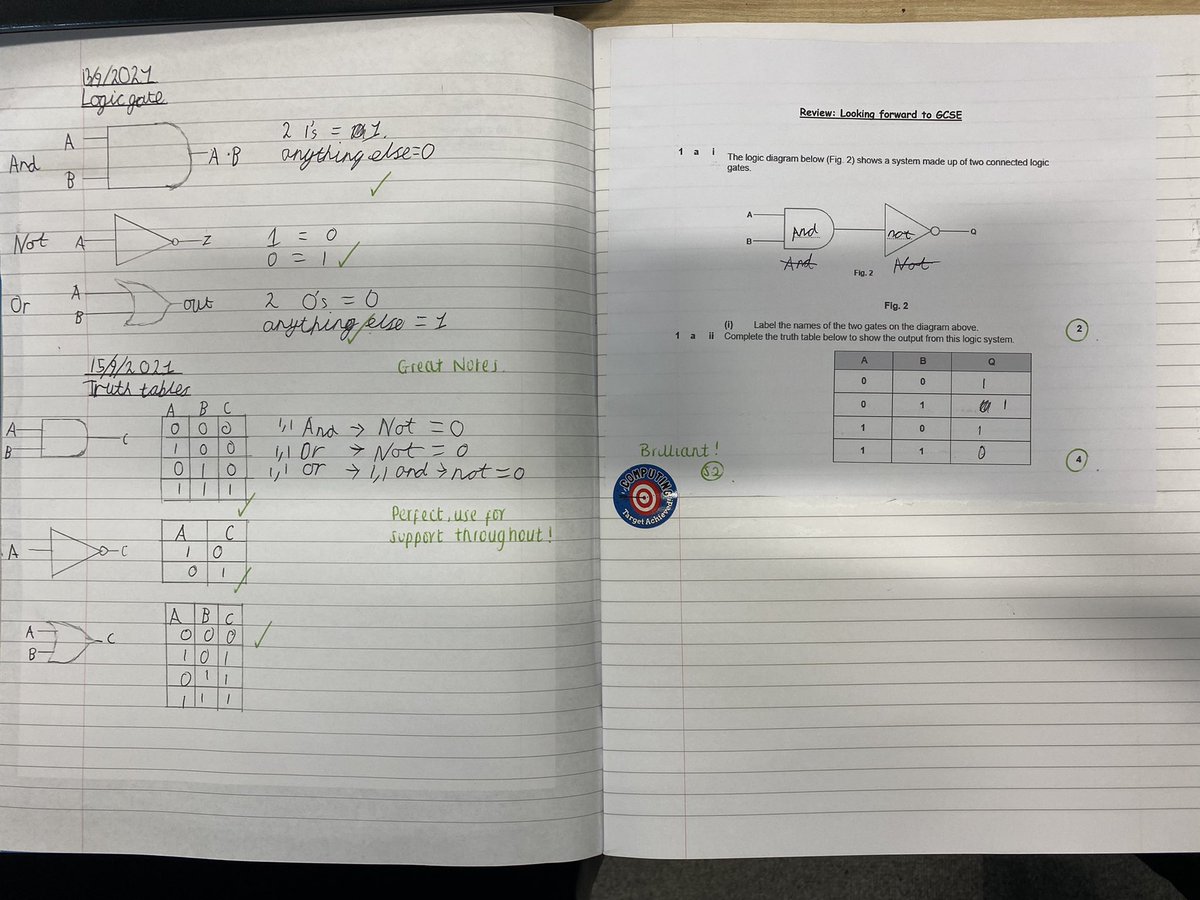 13/9/2021
Logic gate
And
A
B
A·B
2 1's = 1.
anything else=0
✓
Not
A
Z
1 = 0
0 = 1 ✓
Or
A
B
out
2 0's = 0
anything else = 1
Great Notes.
15/9/2021
Truth tables
A
B
C
A B C
0 0 0
1 0 0
0 1 0
1 1 1
1,1 And → Not = 0
1,1 Or → Not = 0
1,1 or → 1,1 and → not = 0
Perfect, use for
support throughout!
A
C
A C
1 0
0 1
A
B
C
A B C
0 0 0
1 0 1
0 1 1
1 1 1
Review: Looking forward to GCSE
1 a i
The logic diagram below (Fig. 2) shows a system made up of two connected logic
gates.
A
B
And
not
Q
And
Not
Fig. 2
Fig. 2
(i) Label the names of the two gates on the diagram above.
2
1 a ii Complete the truth table below to show the output from this logic system.
A B Q
0 0 1
0 1 1
1 0 1
1 1 0
4
Brilliant!
5.2
COMPUTING
Target Achieved!